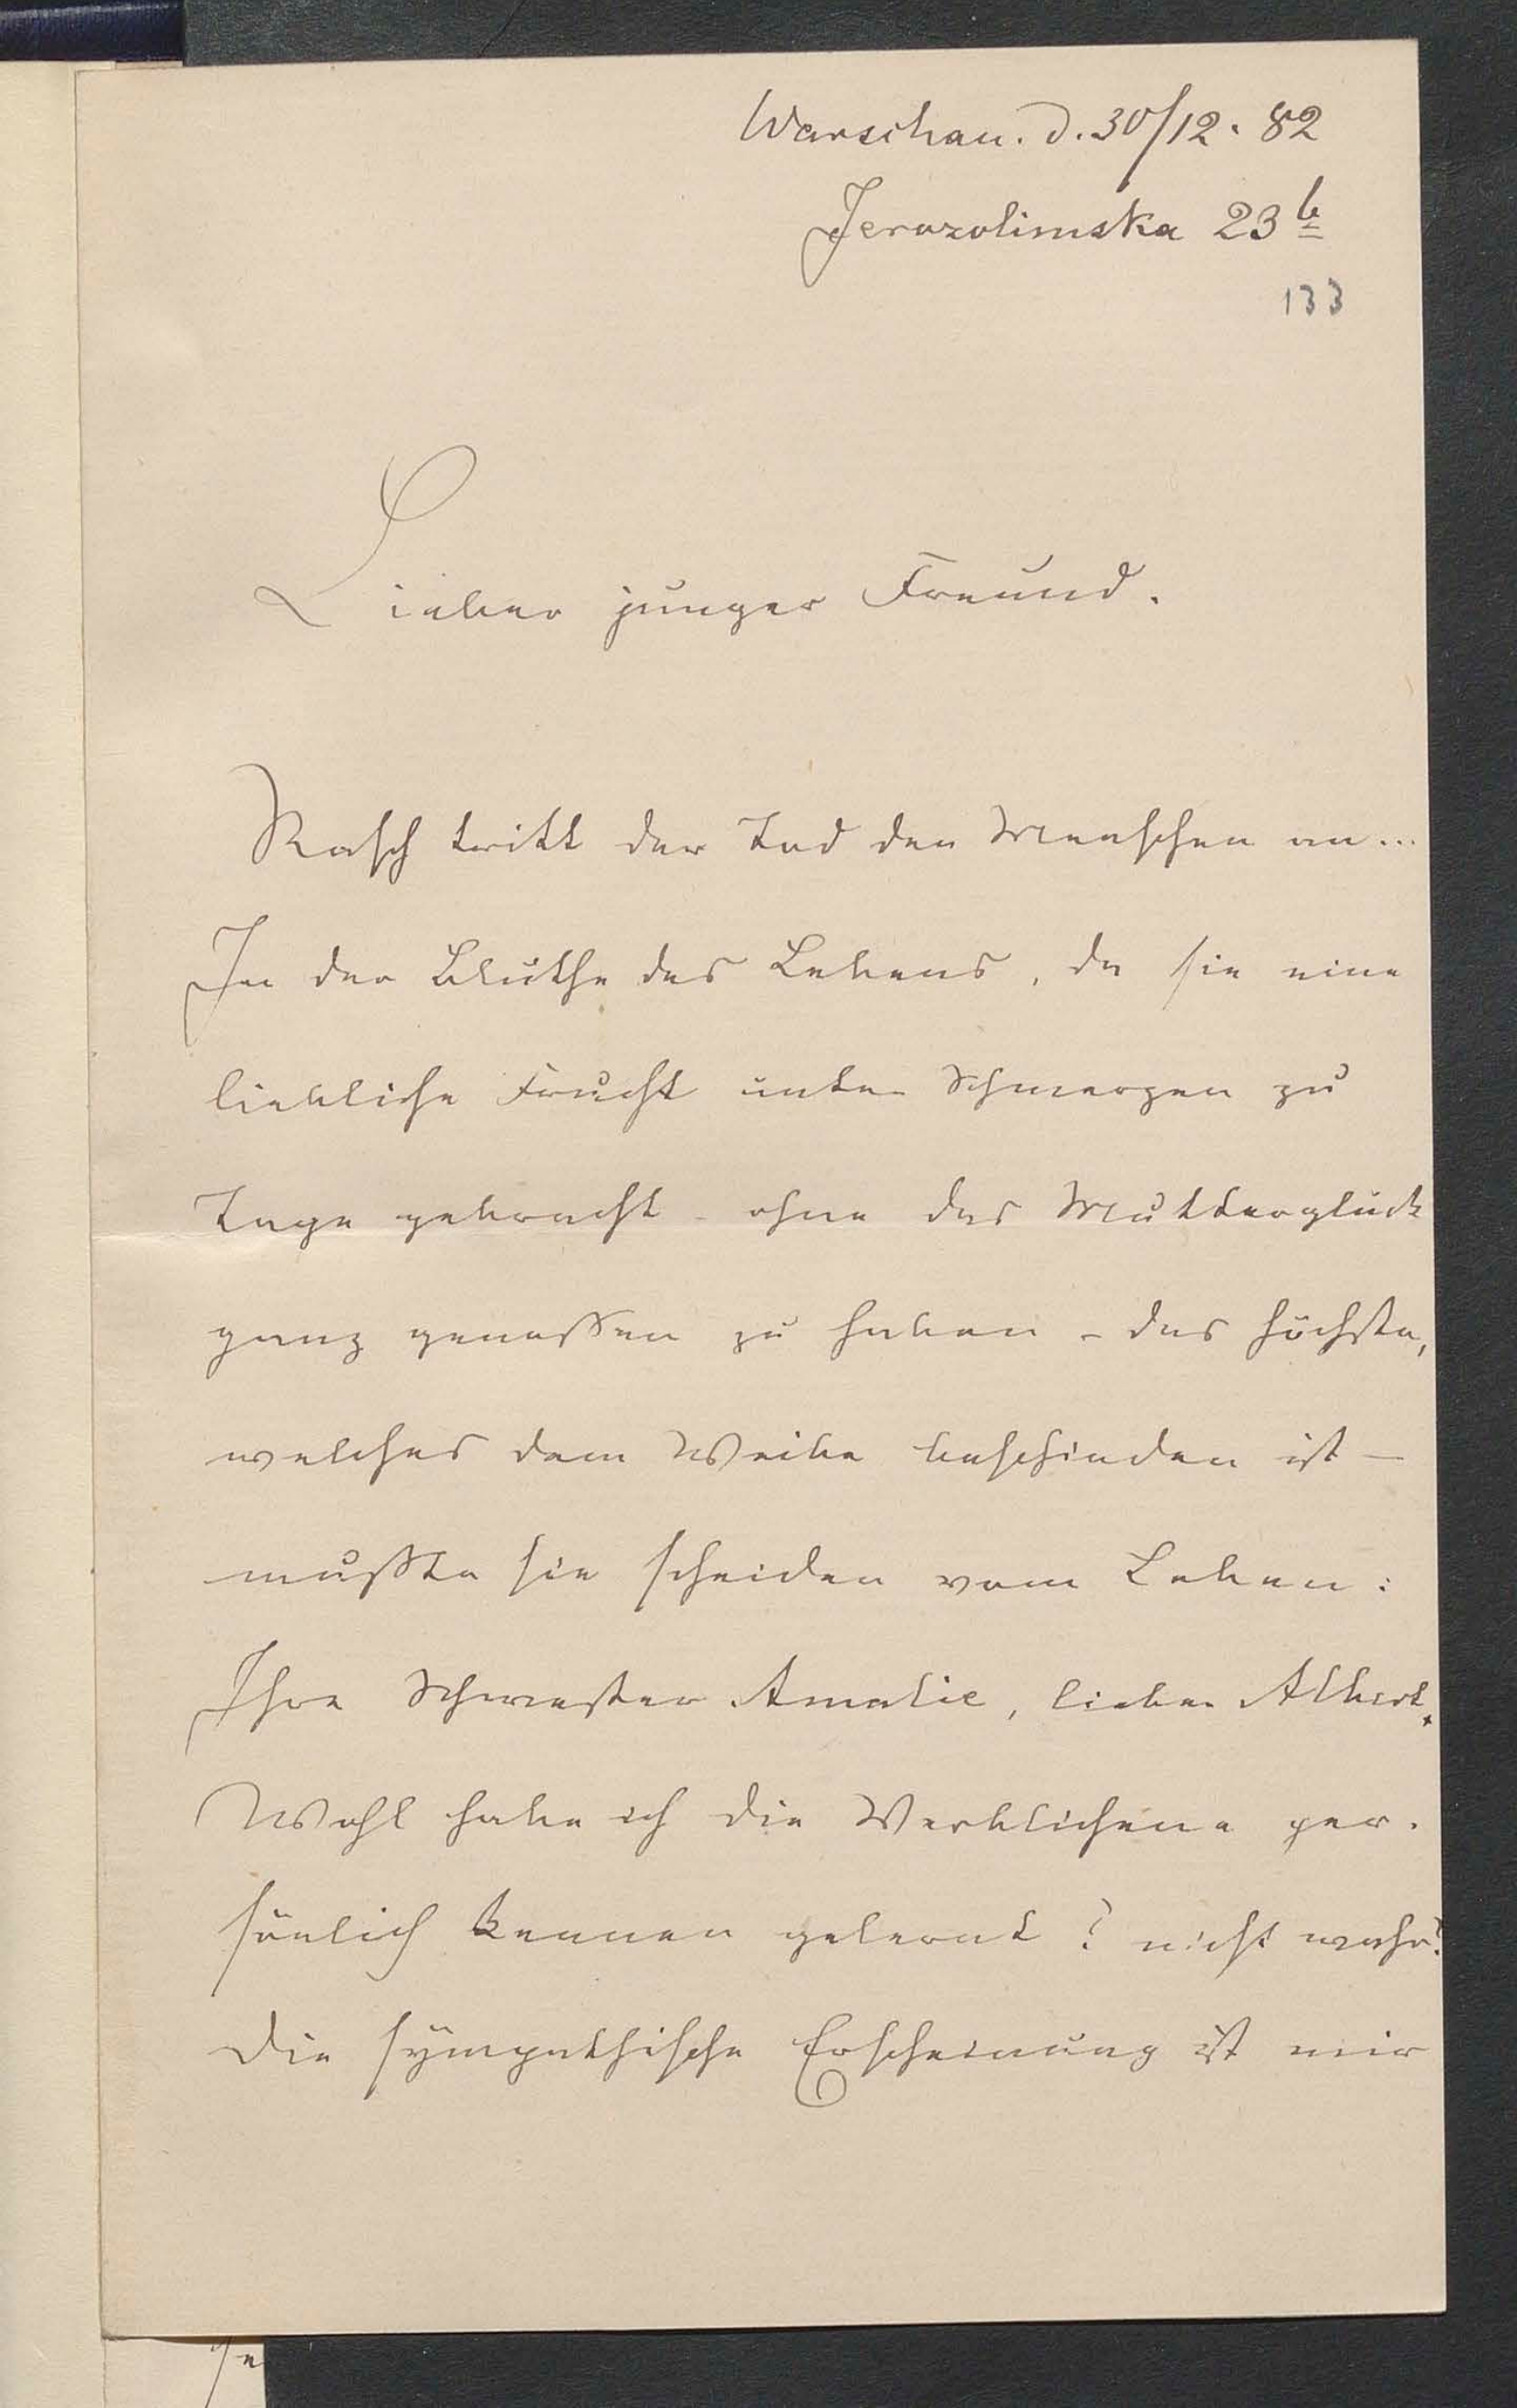 Warschau. d. 30/12. 82
Jerozolimska 23 b
133
Lieber junger Freund.
Rasch tritt der Tod den Menschen an...
In der Blüthe des Lebens, da sie eine
liebliche Frucht unter Schmerzen zu
Tage gebracht - ohne das Mutterglück
ganz genossen zu haben - das höchste,
welches dem Weibe beschieden ist -
mußte sie scheiden vom Leben:
Ihre Schwester Amalie, lieber Albert.
Wohl habe ich die Verblichene per-
sönlich kennen gelernt? nicht wahr?
Die sympathische Erscheinung ist mir